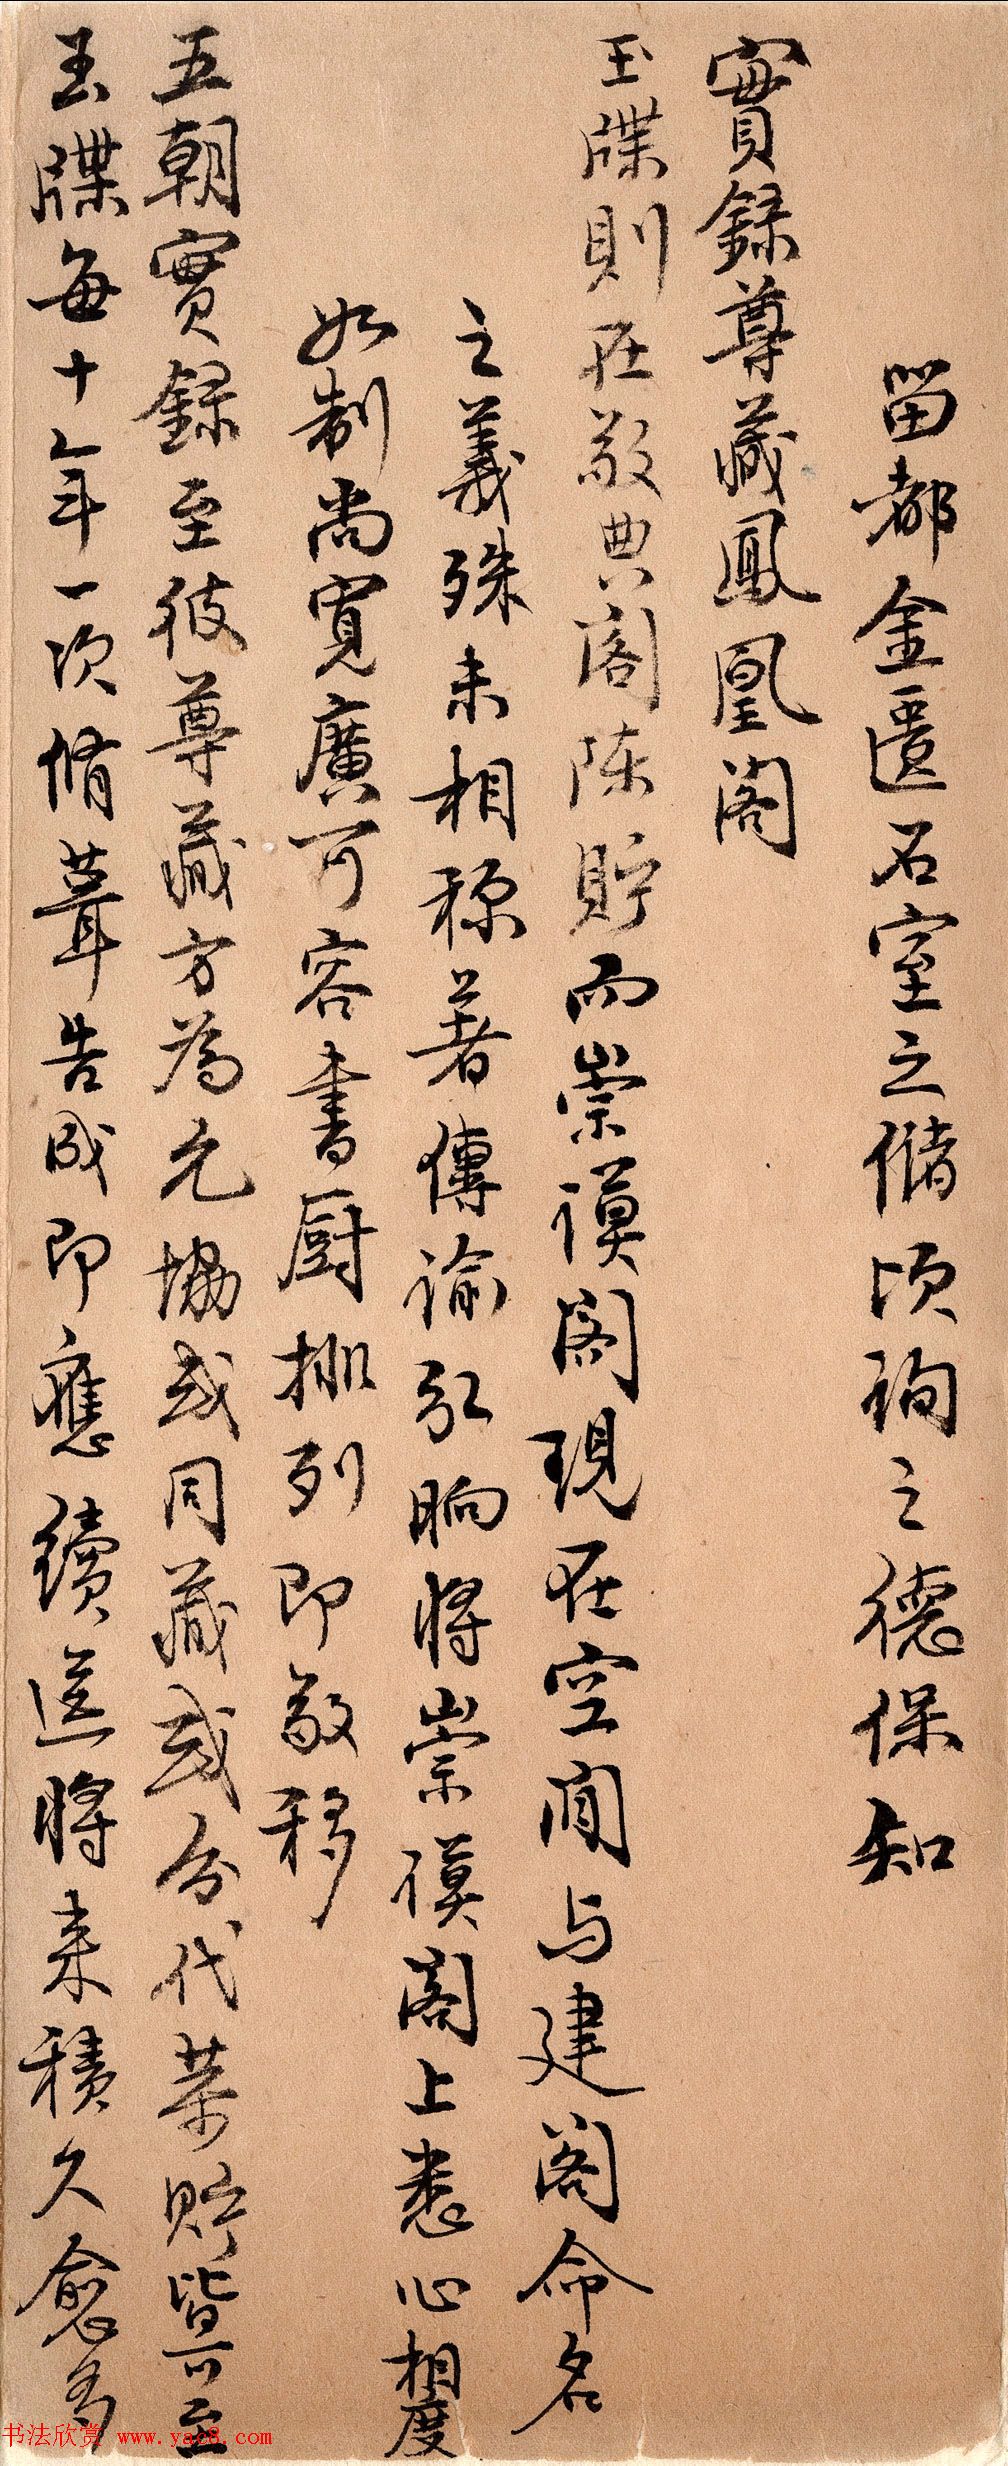 留都金匱石室之儲頃詢之德保知
實錄尊藏鳳凰閣
玉牒則在敬典閣陳貯而崇謨閣現在空閒与建閣命名
之義殊未相称著傳諭弘晌將崇謨閣上悉心相度
如制尚寬廣可容書厨排列即敬移
五朝實錄至彼尊藏方為允協或同藏或分代 貯皆可至
玉牒每十年一次脩葺告成即應續送將来積久愈多
书法欣赏 www.yac8.com